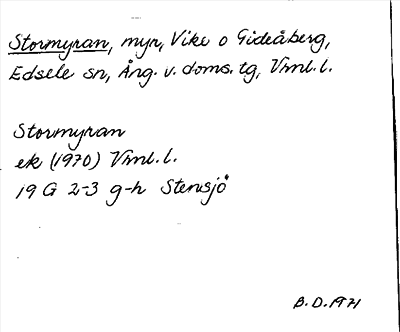 Stormyran, myr, Vike o Gideåberg,
Edsele sn, Ång. v. doms. tg, Vrnl. l.
Stormyran
ek (1970) Vrnl. l.
19 G 2-3 g-h Stensjö
B. D. 1971